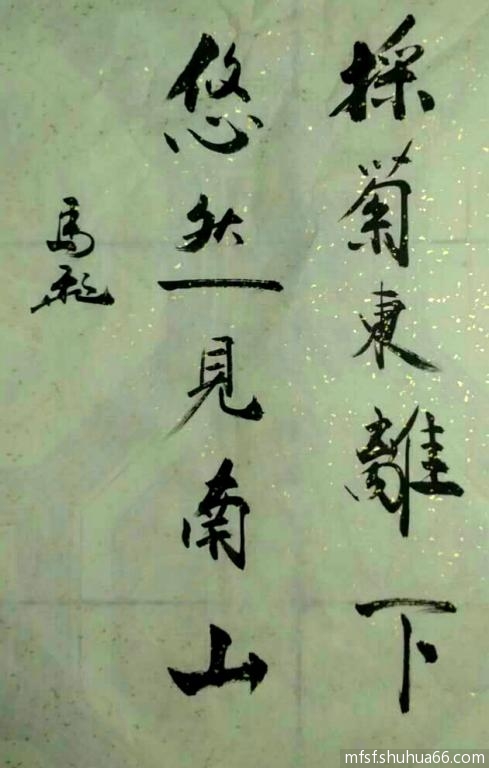 採菊東離下
悠然見南山
馬飛
mfsfshuhua66.com